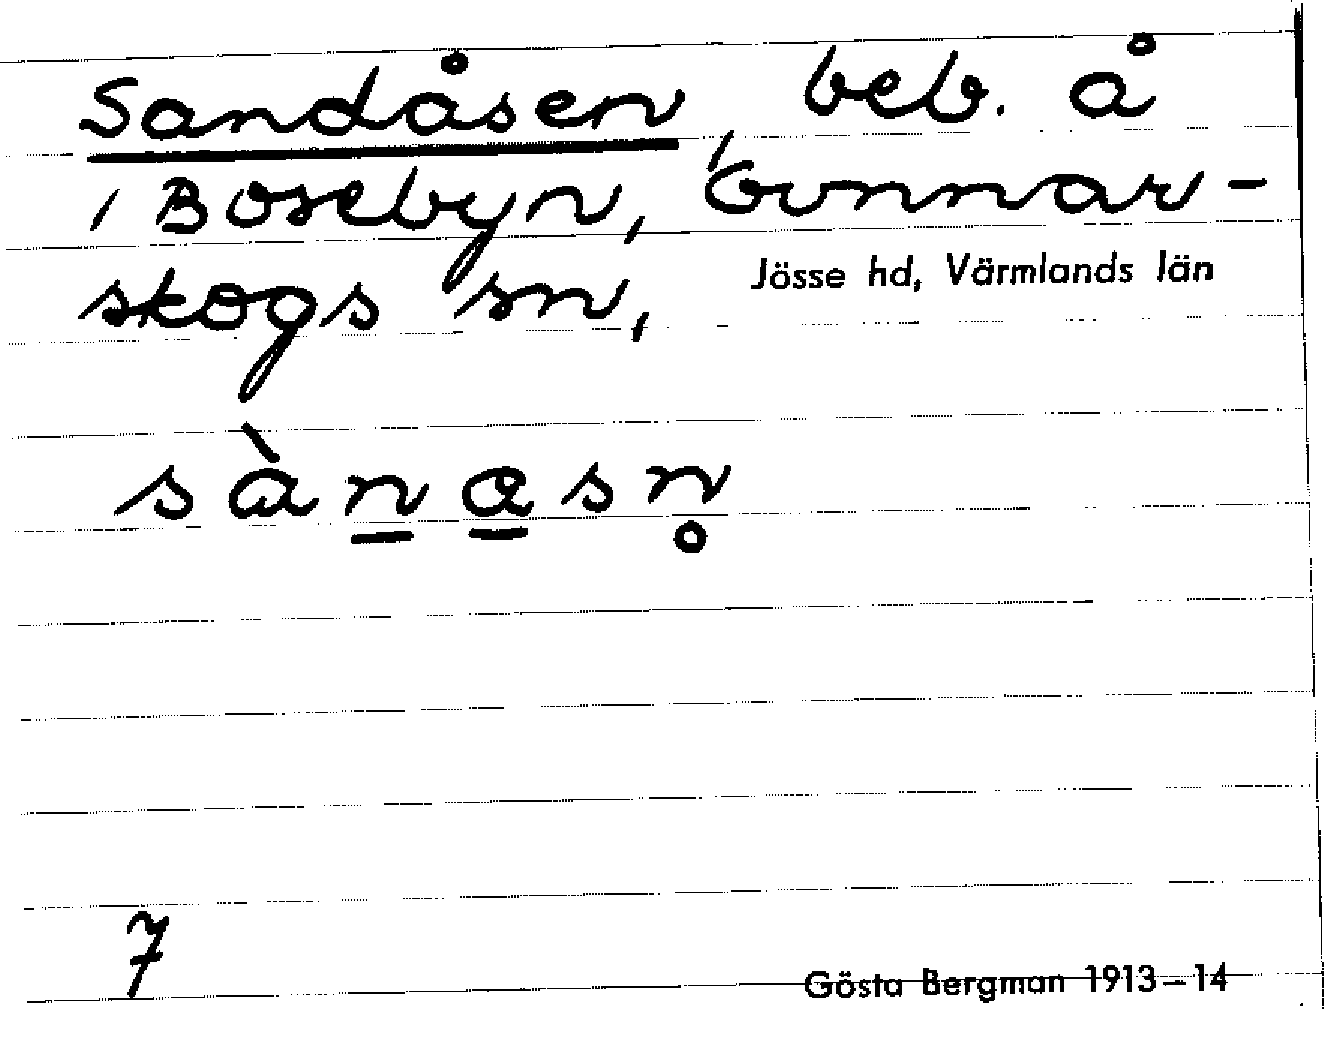 Sandåsen, beb. å
/ Bosebyn, Gunnar-
skogs sn, Jösse hd, Värmlands län
sàn̲a̲sn̥
7
Gösta Bergman 1913–14